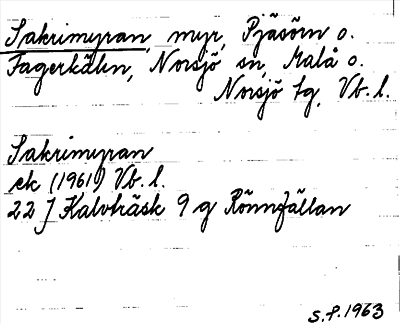 Sakrimyran, myr, Pjäsörn o.
Fagerkälen, Norsjö sn, Malå o.
Norsjö tg, Vb. l.
Sakrimyran
ek (1961) Vb. l.
22 J Kalvträsk 9 g Rönnfällan
S.P. 1963